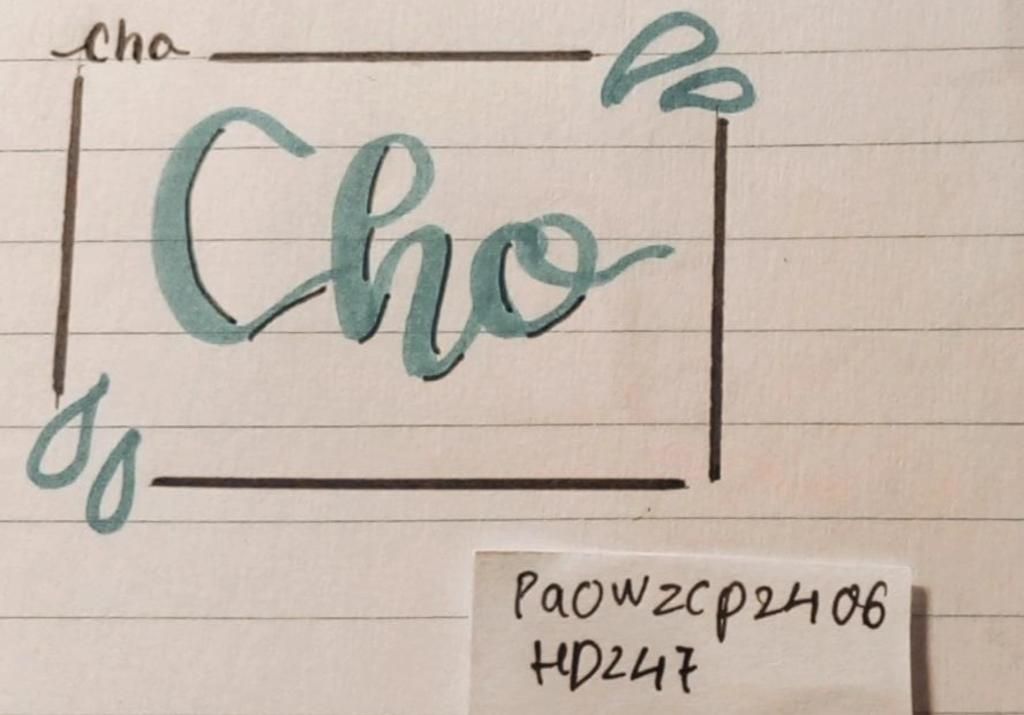 Cho
Cho
PaOWZCP2406
HD247